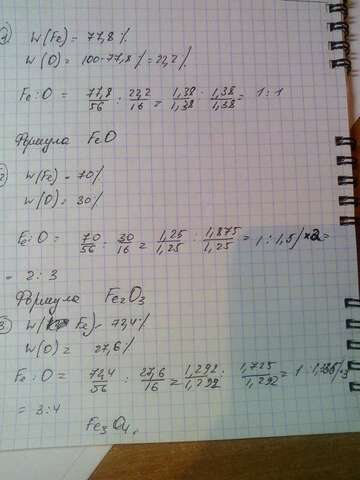 1) W(Fe) = 77,8%
W(O) = 100-77,8% = 22,2%
Fe : O = 77,8/56 : 22,2/16 = 1,38/1,38 : 1,38/1,38 = 1 : 1
Формула FeO
2) W(Fe) = 70%
W(O) = 30%
Fe : O = 70/56 : 30/16 = 1,25/1,25 : 1,875/1,25 = 1 : 1,5/×2 =
= 2 : 3
Формула Fe2O3
3) W(Fe) = 72,4%
W(O) = 27,6%
Fe : O = 72,4/56 : 27,6/16 = 1,292/1,292 : 1,725/1,292 = 1 :
= 3:4
Fe3O4.